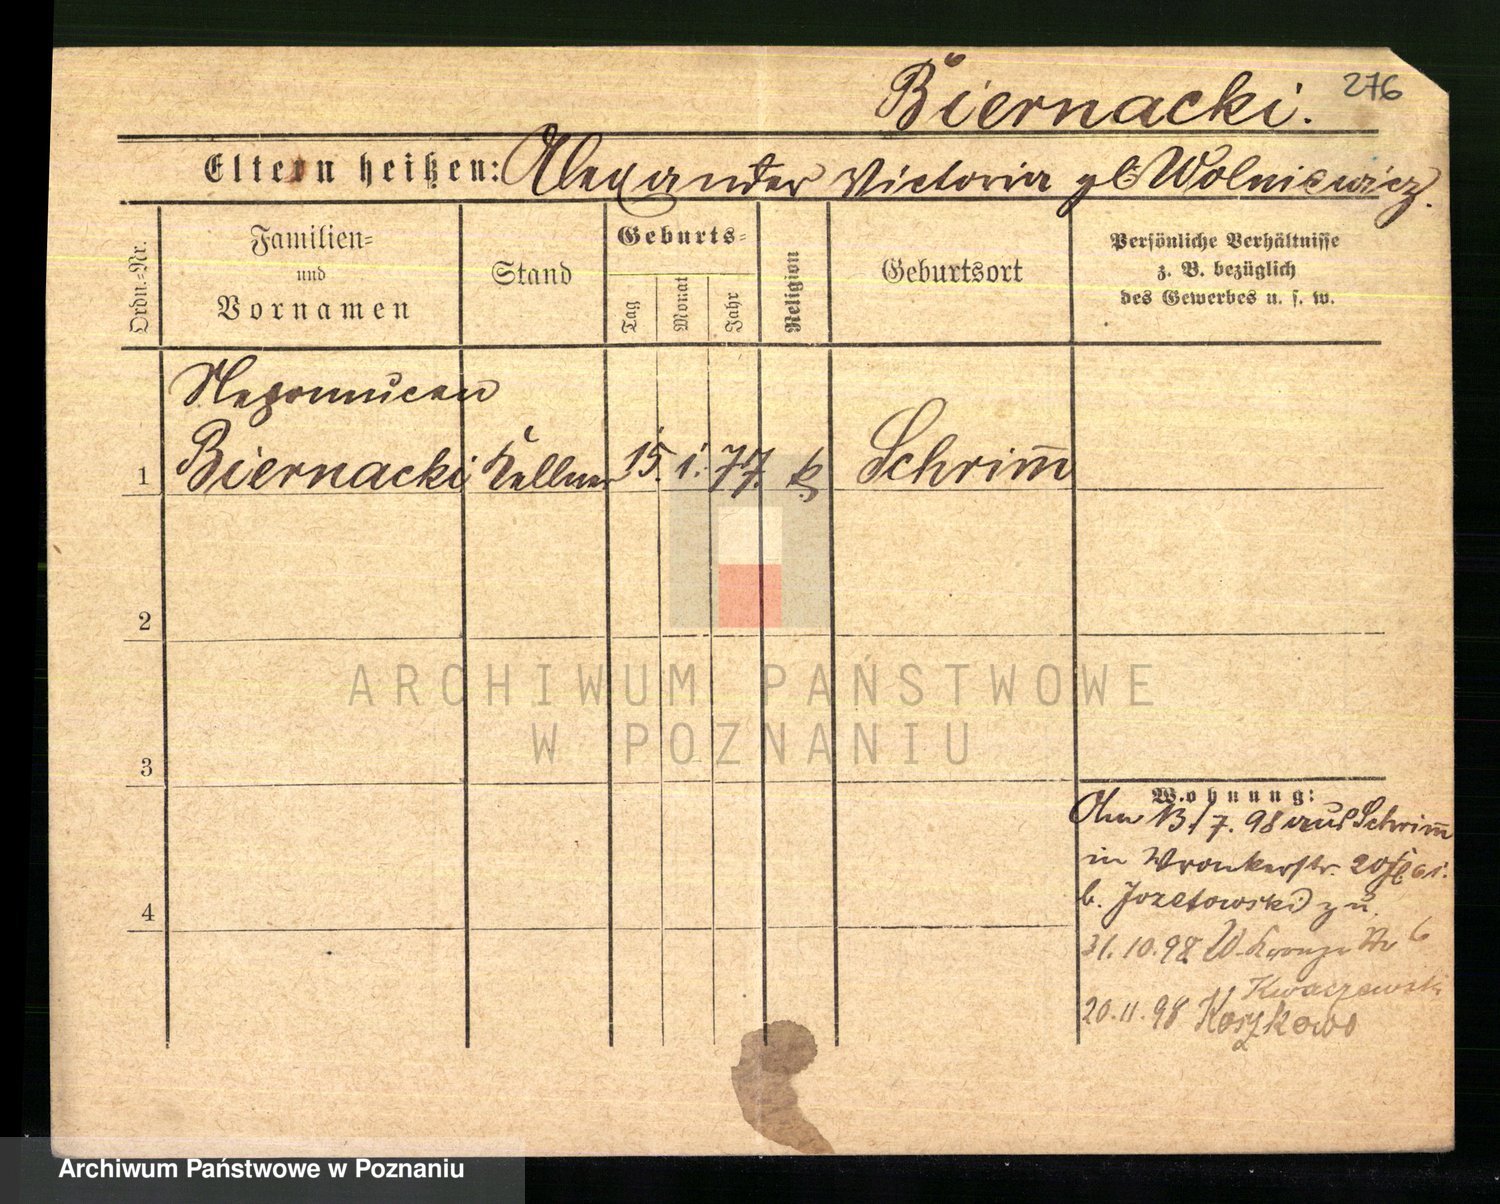 Biernacki. 276
Eltern heißen: Alexander Victoria gb Wolniewicz.
Ordn.-Nr.
Familien-
und
Vornamen
Stand
Geburts-
Tag
Monat
Jahr
Religion
Geburtsort
Persönliche Verhältnisse
z. B. bezüglich
des Gewerbes u. s. w.
Nepomucen
1 Biernacki Kellner 15. 1. 77. k Schrim̅
2
ARCHIWUM PAŃSTWOWE
W POZNANIU
3
Wohnung:
Am 13/7. 98 aus Schrim̅
in Wronkerstr. 20
b. Jozefowski zu.
31.10.98 W. 6
Kwaczewski
20.11.98 Koszkowo
4
Archiwum Państwowe w Poznaniu